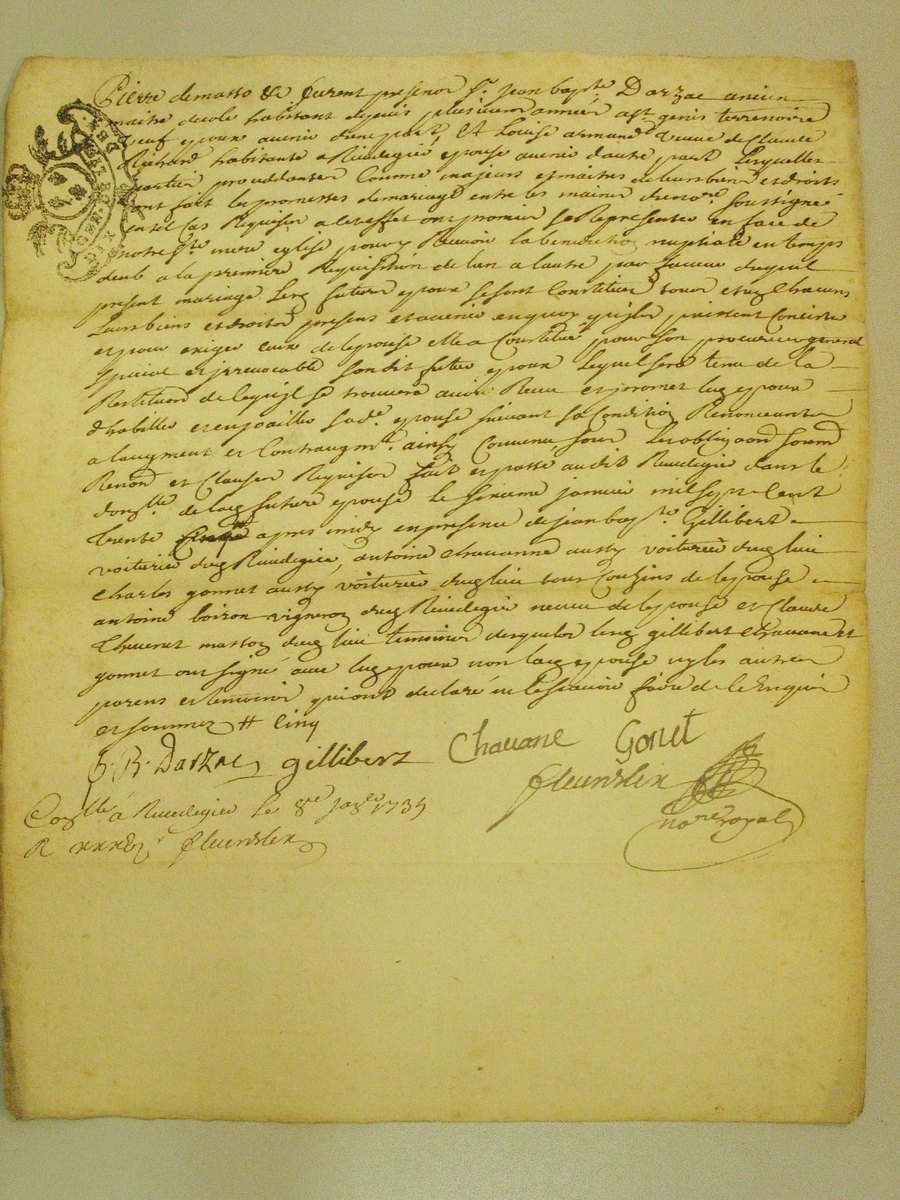 Pierre demasso &c furent presens Sr. Jean bapte Darzac ancien
maitre decole habitant depuis plusieurs année a St. genis terrenoire
veuf epoux avenir dune part, Et Louise armand veuve de Claude
Richard habitante a Rivedegié epouse avenir dautre part Lesquelles
parties procedantes Comme majeurs et maitres de leurs biens et droits
ont fait les promesses de mariage entre les mains du nore. soussigné
en tel cas Requises a cet effet ont promis se Representer en face de
notre Ste. mere eglise pour y Recevoir la benediction nuptiale en temps
deub a la premiere Requisition de lun a lautre par faveur duquel
present mariage Lesd futurs epoux se sont Constitués tous et un chacuns
Leurs biens et droits presens et avenir en quoy quils puissent Consister
et pour exiger ceux de lepouse elle a Constitué pour son procureur general
special et irrevocable sondit futur epoux Lequel sera tenu de la
Restitution de ce quil se trouvera avoir Receu et promet led epoux
dhabiller et enjoailler sade. epouse suivant sa Condition Renonceants
a laugment et Contraugmt. ainsy Convenu sous Les obligaons soumd
Renond et Clauses Requises fait et passé audit Rivedegié dans le
domlle. de lad future epouse Le sixieme janvier mil sept Cent
trente apres midy en presence de jean bapte. Gillibert
voiturier dud Rivedegié, antoine Chavanne aussy voiturier dud lieu
Charles gonnet aussy voiturier dud lieu tous Couzins de lepouse
antoine boiron vigneron dud Rivedegié neveu de lepouse et Claude
Thevenet masson dud lieu temoins desquels lesd gillibert Chavane et
gonnet ont signé avec led epoux non lad epouse ny les autres
parens et temoins qui ont declaré ne le scavoir faire de ce Enquis
et sommez # Cinq
J. B. Darzac gillibert Chavane Gonet
nore royal
Conllé a Rivedegier Le 8e janer 1735